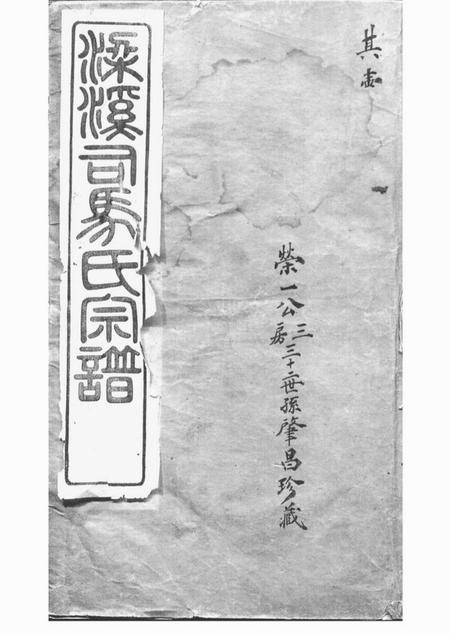 其壹
榮一公三房三十二世孫肇昌珍藏
梁溪司馬氏宗譜